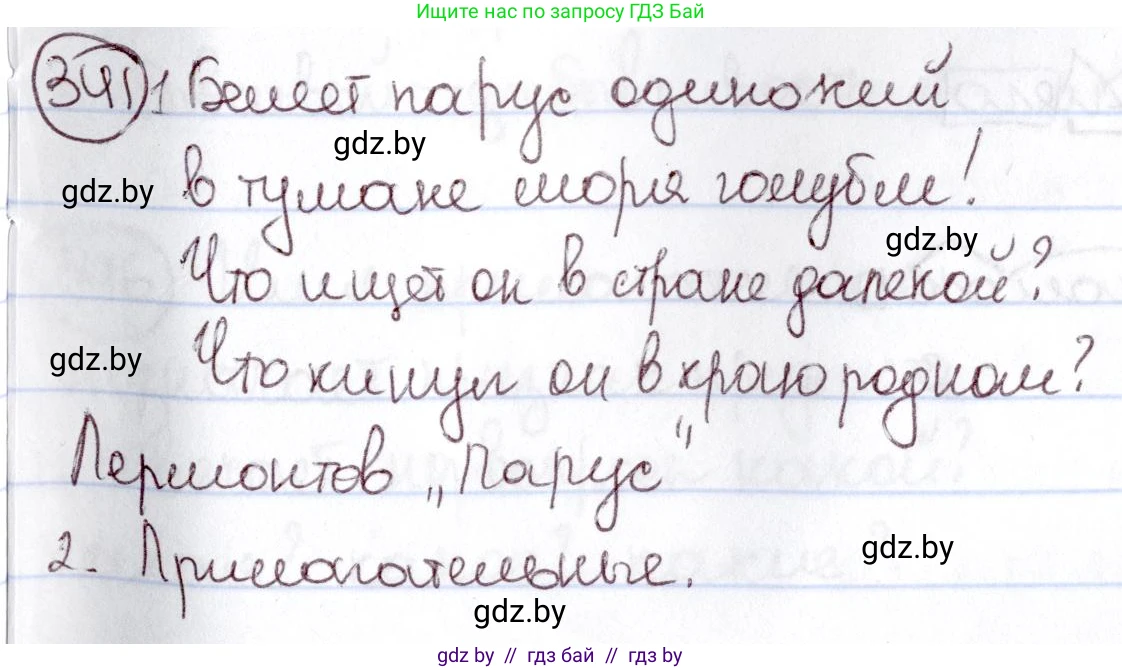 Ищите нас по запросу ГДЗ Бай
341 1 Белеет парус одинокий
gdz.by
gdz.by в тумане моря голубом!
gdz.by
Что ищет он в стране далекой?
gdz.by Что кинул он в краю родном?
Лермонтов „Парус"
2. Прилагательные.
gdz.by
gdz.by
gdz.by // гдз бай // gdz.by